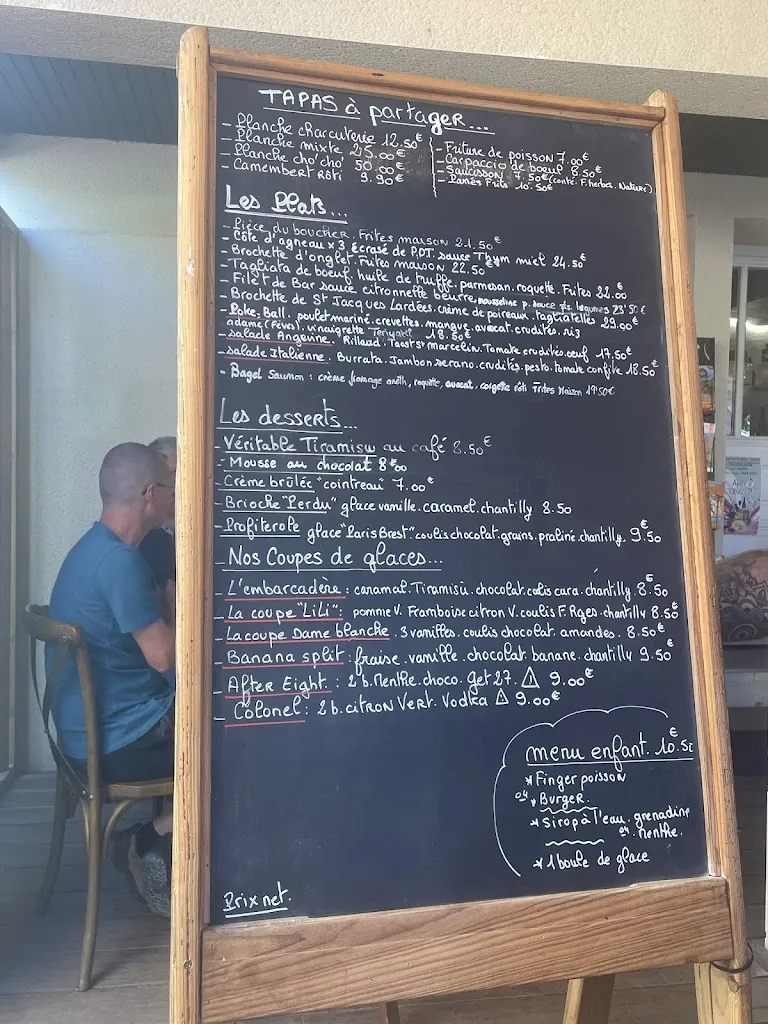 TAPAS à partager...
- Planche charcuterie 12.50€
- Planche mixte 25.00€
- Planche cho'cho' 50.00€
- Camembert Rôti 9.90€
- Friture de poisson 7.00€
- Carpaccio de boeuf 8.50€
- Saucisson 7.50€ (conté. F.herbes. Nature)
- Panés Frits 10.50€
Les Plats...
- Pièce du boucher. Frites maison 21.50€
- Côte d'agneau x 3. Écrasé de P.D.T. sauce Thym miel 24.50€
- Brochette d'onglet. Frites maison 22.50€
- Tagliata de boeuf, huile de truffe. parmesan. roquette. Frites 22.00
- Filet de Bar sauce citronnette beurre, mousseline p. douce pts. légumes 23'50€
- Brochette de St Jacques Lardées. crème de poireaux. tagliatelles 29.00€
- Poke. Ball. poulet mariné. crevettes. mangue. avocat. crudités. riz
adame (Fèves). vinaigrette Teriyaki 18.50€
- salade Angevine. Rillaud. Toast St marcelin. Tomate crudités. oeuf 17.50€
- salade Italienne. Burrata. Jambon serano. crudités. pesto. tomate confite 18.50€
- Bagel Saumon : crème fromage aneth, roquette, avocat, corgette rôti Frites Maison 19'50€
Les desserts...
- Véritable Tiramisu au café 8.50€
- Mousse au chocolat 8€00
- Crème brûlée "cointreau" 7.00€
- Brioche "Perdu" glace vanille. caramel. chantilly 8.50
- Profiterole glace "Paris Brest" coulis chocolat. grains. praliné. chantilly. 9€50
- Nos Coupes de glaces...
- L'embarcadère : caramal. Tiramisù. chocolat. colis cara. chantilly 8.€50
- La coupe "LiLi" : pomme V. Framboise citron V. coulis F. Rges. chantilly 8.50€
- La coupe Dame blanche. 3 vanilles. coulis chocolat. amandes. 8.50€
- Banana split : fraise. vanille. chocolat. banane. chantilly 9.50€
- After Eight : 2 b. Menthe. choco. get 27. ⚠ 9.00€
- Colonel : 2 b. citron Vert. Vodka ⚠ 9.00€
menu enfant. 10.€50
* Finger poisson
ou * Burger.
* sirop à l'eau. grenadine
ou. menthe.
* 1 boule de glace
Prix net.